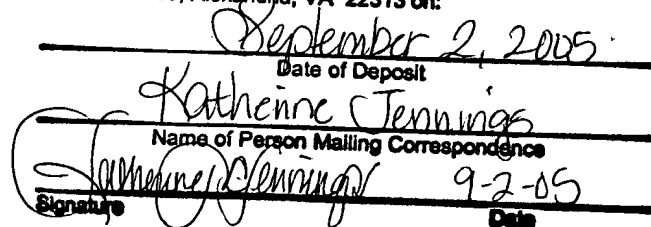 Alexandria, VA 22313 on:
September 2, 2005
Date of Deposit
Katherine Jennings
Name of Person Mailing Correspondence
Katherine Jennings 9-2-05
Signature Date